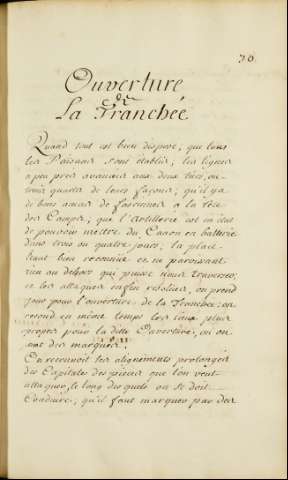 70.
Ouverture
de
La Tranchée
Quand tout est bien disposé; que tous
les Païsans sont établis; les lignes
a peu prés avancées aux deux tiers, ou
trois quarts de leurs façons; qu'il y a
de bons amas de fascines a la tête
des Camps; que l'Artillerie est en état
de pouvoir mettre du Canon en batterie
dans trois ou quatre jours; la place
étant bien reconnüe et ne paroissant
rien au dehors qui puisse nous traverser,
et les attaques enfin resolües, on prend
jour pour l'ouverture de la Tranchée: on
reconn en même temps les lieux plus
propres pour la ditte Ouverture, où on
met des marques;
On reconnoit les alignements prolongés
des Capitales des pieces que l'on veut
attaquer, le long des quels on se doit
Conduire; qu'il faut marquer par des